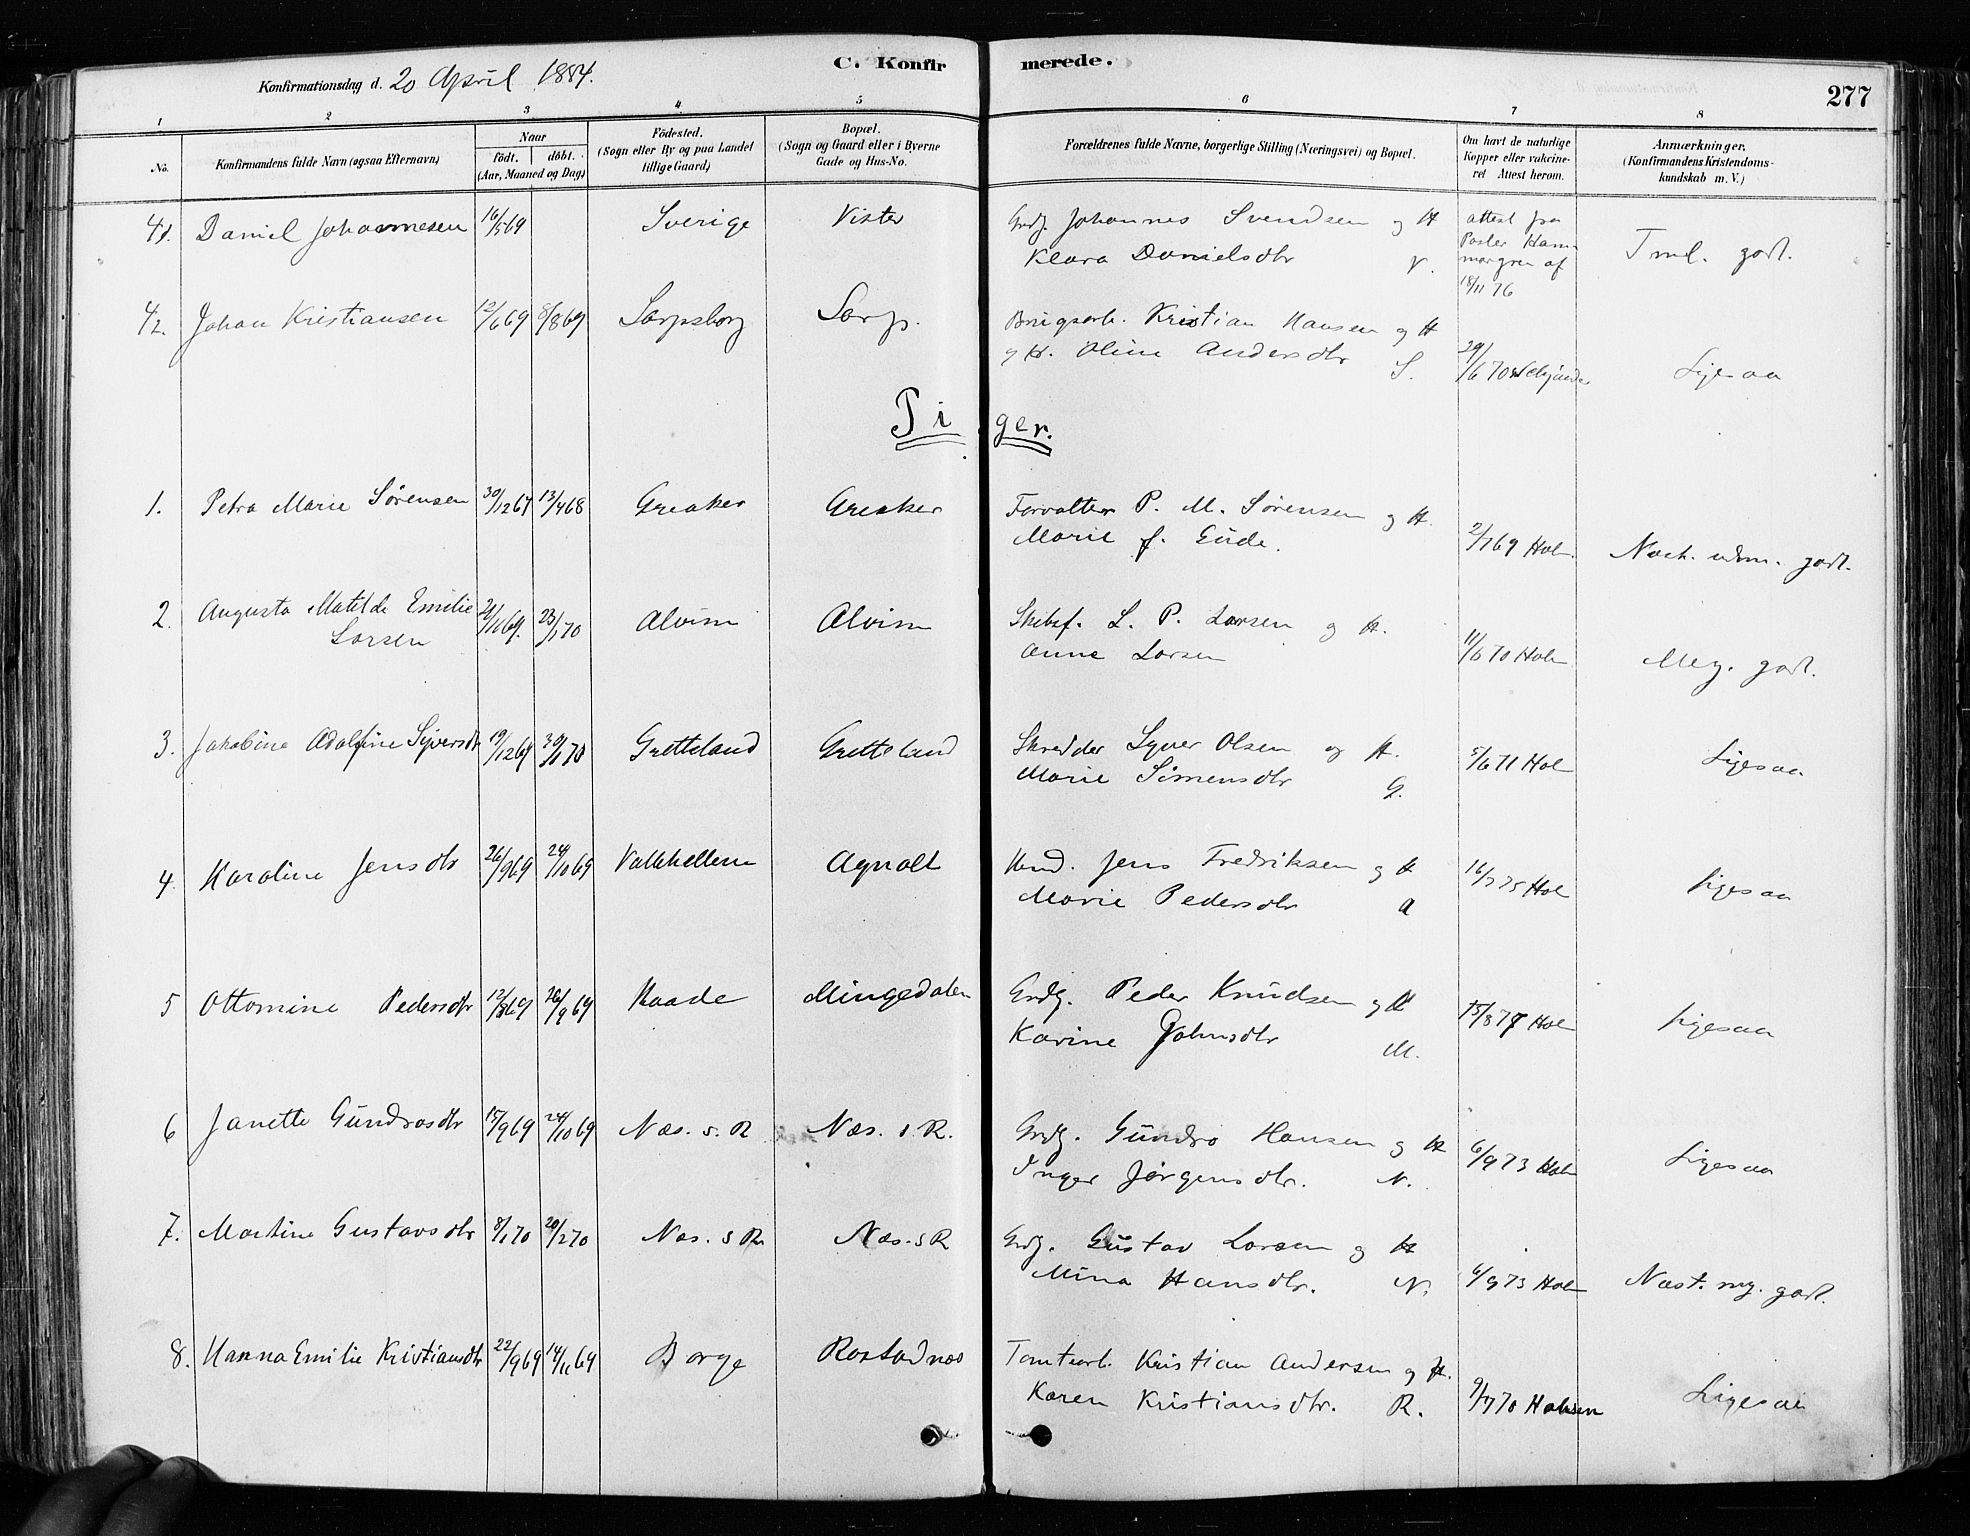 Konfirmationsdag d. 20 April 1884.
C. Konfirmerede.
277
1 2 3 4 5 6 7 8
No.
Konfirmandens fulde Navn (ogsaa Efternavn)
Naar
födt. döbt.
(Aar, Maaned og Dag)
Födested.
(Sogn eller By og paa Landet
tillige Gaard)
Bopæl.
(Sogn og Gaard eller i Byerne
Gade og Hus-No.
Forældrenes fulde Navne, borgerlige Stilling (Næringsvei) og Bopæl.
Om havt de naturlige
Kopper eller vakcine-
ret Attest herom.
Anmærkninger.
(Konfirmandens Kristendoms-
kundskab m. V.)
41. Daniel Johannesen 16/5 69 Sverige Vister Grdj. Johannes Svendsen og H
Klara Danielsdtr V.
attest fra
Paster Ham-
margren af
18/11 76
Tml. godt.
42. Johan Kristiansen 12/6 69 8/8 69 Sarpsborg Sarp. Brugsarb. Kristian Hansen og H
og H. Oline Andersdtr S.
29/6 70
Ligesaa
Piger.
1. Petra Marie Sørensen 30/12 67 13/4 68 Greaker Greaker Forvalter P. M. Sørensen og H.
Marie f. Gude.
2/7 69 Hol
godt.
2. Augusta Matilde Emilie
Larsen
21/11 69. 23/1 70 Alvim Alvim Skibsf. L. P. Larsen og H.
Anne Larsen
11/6 70 Hol
Meg. godt.
3. Jakobine Adolfine Syversdtr 19/12 69 30/1 70 Gretteland Gretteland Skredder Syver Olsen og H.
Marie Simensdtr G.
5/6 71 Hol
Ligesaa
4. Karoline Jensdtr 26/9 69 24/10 69 Valkhellene Agnalt Jens Fredriksen og H
Marie Pedersdtr A
16/7 75 Hol
Ligesaa
5 Ottomine Pedersdtr 12/8 69 26/9 69 Raade Mingedalen Grdj. Peder Knudsen og H
Karine Johnsdtr M.
15/8 77 Hol
Ligesaa
6 Janette Gundrosdtr 15/9 69 24/10 69 Næs. s. R Næs. s R. Grdj. Gundro Hansen og H
Inger Jørgensdtr. N.
6/9 73 Hol
Ligesaa
7. Martine Gustavsdtr 8/1 70 20/2 70 Næs. s R. Næs. s R Grdj. Gustav Larsen og H
Mina Hansdtr. N.
6/9 73 Hol
Næst. mg. godt.
8. Hanna Emilie Kristiansdtr 22/9 69 14/11 69 Borge Rostadnæs Tomtearb. Kristian Andersen og H.
Karen Kristiansdtr. R.
9/7 70 Holmsen
Ligesaa